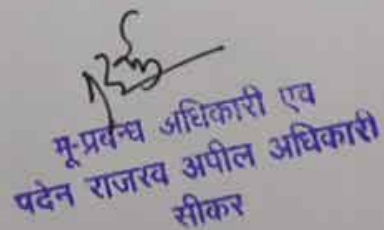 मू-प्रबन्ध अधिकारी एव
पदेन राजरव अपील अधिकारी
सीकर